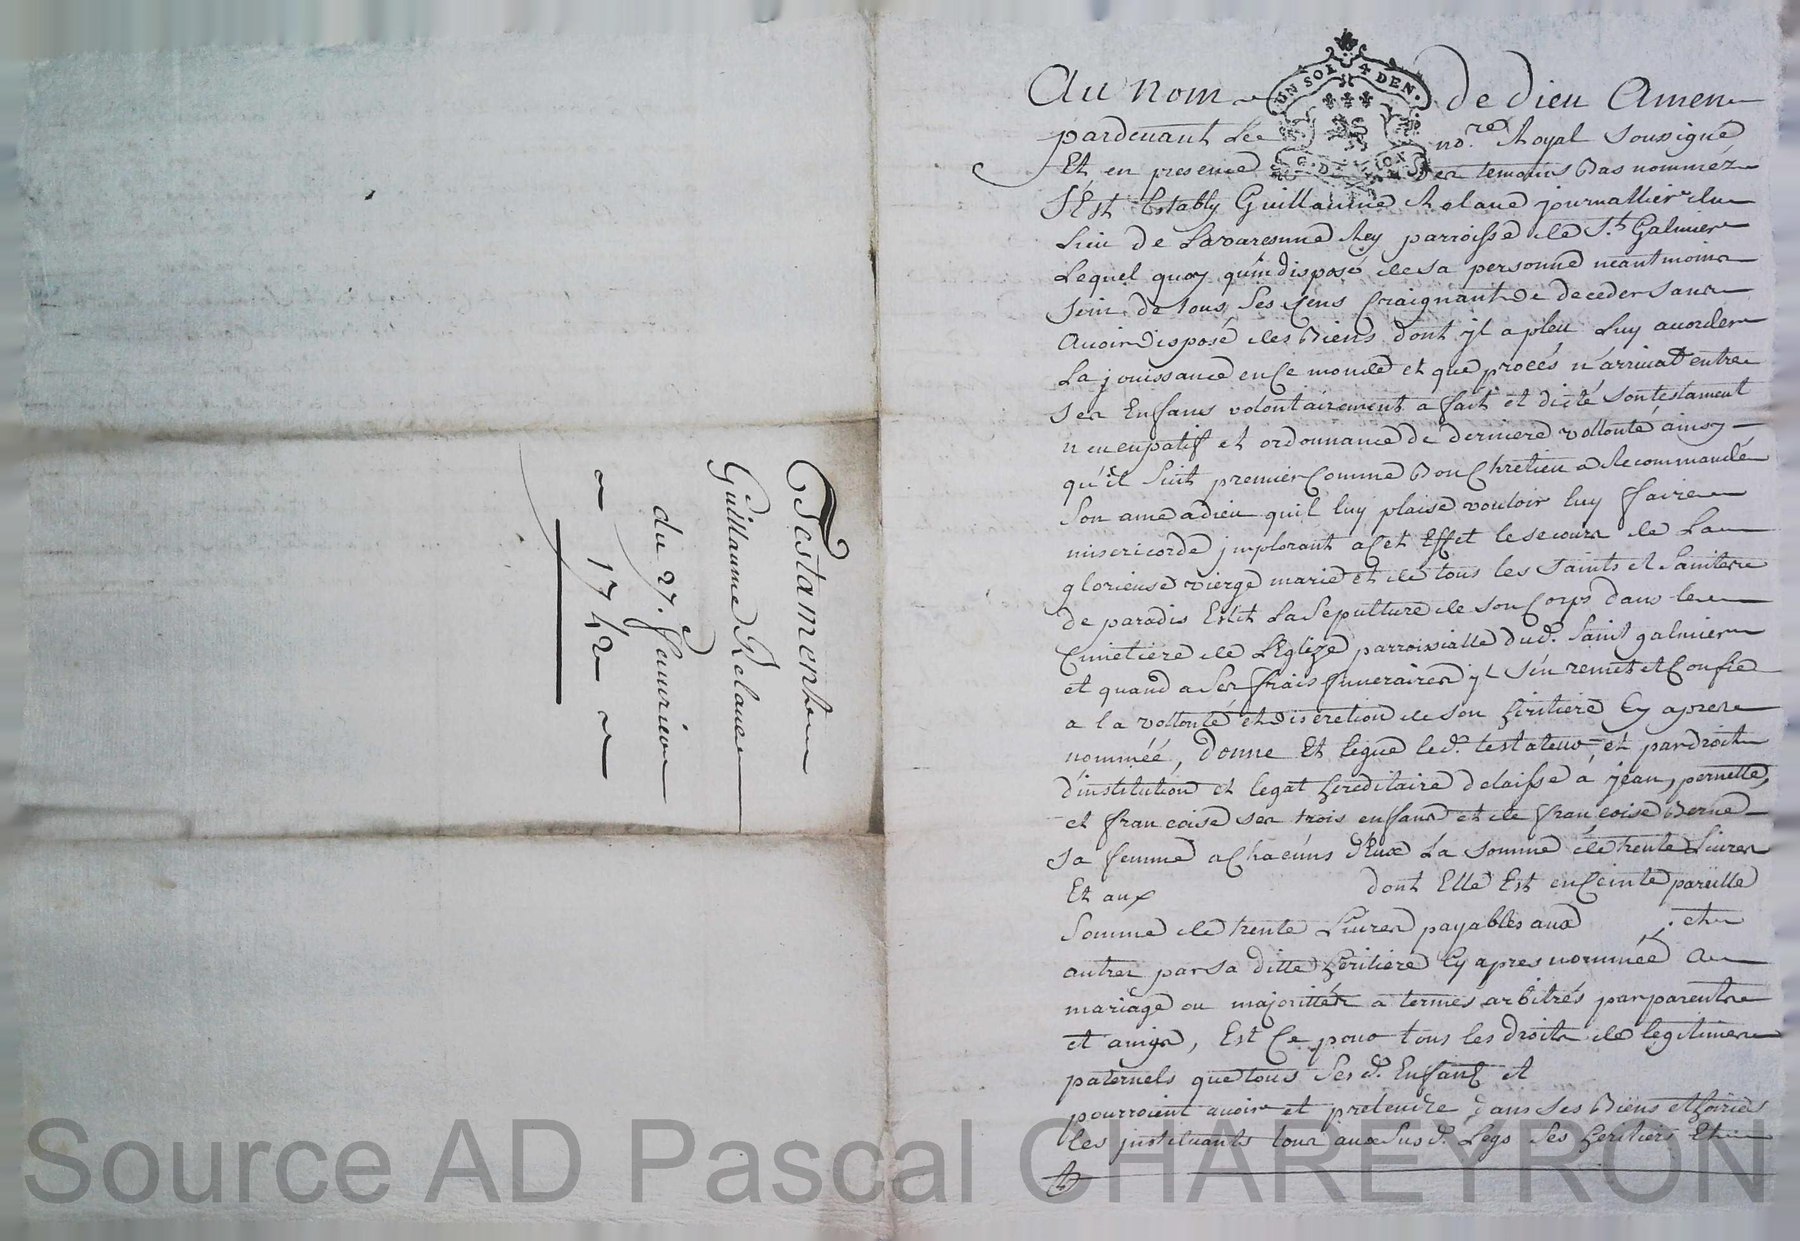 Testament
Guillaume Relave
du 27.e feurier
1742
UN SOL 4 DEN.
G. D. LION
Au nom de dieu Amen
pardeuant Le no.re Royal soussigné
Et en presence des temoins Bas nomméz
S'Est Estably Guillaume Relaue journallier du
Lieu de Lavaresnne Rey parroisse de S.t Galmier
Lequel quoy qu'indisposé de sa personne neantmoins
sein de tous ses sens Craignant de deceder sans
Auoir disposé des Biens dont yl a pleu Luy acorder
La jouissance en Ce monde et que procés n'arriuat entre
ses Enfans volontairement a fait et dicté son testament
nuncupatif et ordonnance de derniere vollonté ainsy
qu'il suit premier Comme Bon Chretien a Recommandé
son ame a dieu quil luy plaise vouloir luy ffaire
misericorde jmplorant a Cet Effet le secours de La
glorieuse vierge marie et de tous les saints et saintes
de paradis Eslit La sepulture de son Corps dans le
Cimetiere de L'Eglize parroissialle dud. saint galmier
et quand a ses ffrais ffuneraires yl s'en remet et Confie
a la vollonté et discretion de son heritiere Cy apres
nommée, donne Et legue led. testateur et par droit
d'institution et legat hereditaire delaisse à jean, pernette,
et francoise ses trois enfans et de francoise Berne
sa femme a Chacuns d'Eux La somme de trente Liures
Et aux dont Elle Est enCeinte pareille
somme de trente Liures payables aux et
autres par sa ditte heritiere Cy apres nommée Au
mariage ou majorittés a termes arbitrés par parents
et amys, Est Ce pour tous les droits de legitimes
paternels que tous ses d. Enfans et
pourroient auoir et pretendre dans ses Biens et hoiries
les jnstituants tous aux sus d. Legs ses heritiers Et
Source AD Pascal CHAREYRON